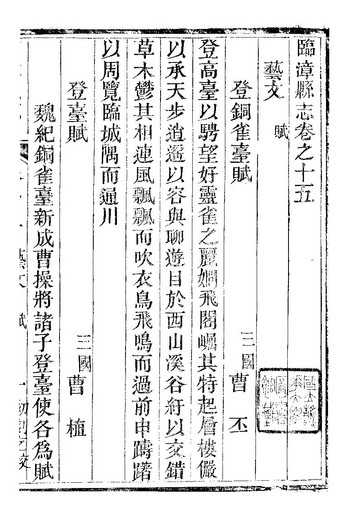 臨漳縣志卷之十五
藝文 賦
登銅雀臺賦 三國 曹丕
登高臺以騁望好靈雀之麗嫻飛閣崛其特起層樓儼
以承天步逍遙以容與聊遊目於西山溪谷紆以交錯
草木鬱其相連風飄飄而吹衣鳥飛鳴而過前申躊躇
以周覽臨城隅而通川
登臺賦 三國 曹植
魏紀銅雀臺新成曹操將諸子登臺使各為賦
藝文 賦 一